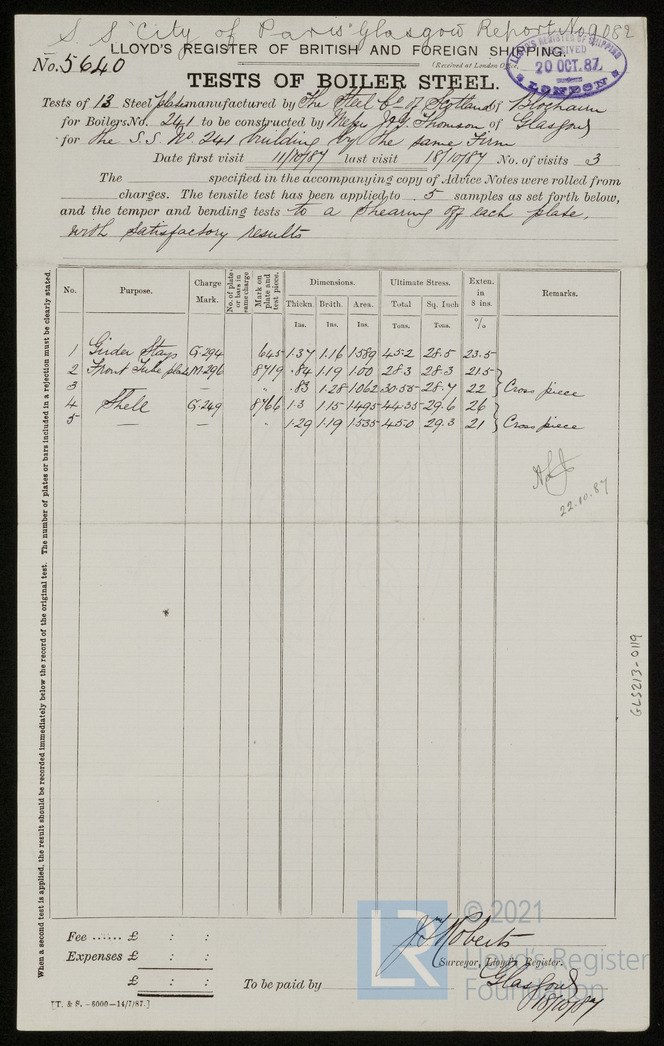 S S "City of Paris" Glasgow Report No 9082
LLOYD'S REGISTER OF BRITISH AND FOREIGN SHIPPING.
No. 5640
(Received at London Office
LLOYD'S REGISTER OF SHIPPING
RECEIVED
20 OCT. 87.
LONDON
TESTS OF BOILER STEEL.
Tests of 13 Steel plates manufactured by The Steel Co of Scotland of Blochairn
for Boilers No. 241 to be constructed by Messrs J&G Thomson of Glasgow
for the S.S. No 241 building by the same Firm
Date first visit 11/10/87 last visit 18/10/87 No. of visits 3
The specified in the accompanying copy of Advice Notes were rolled from
charges. The tensile test has been applied to 5 samples as set forth below,
and the temper and bending tests to a shearing off each plate,
with satisfactory results
No. Purpose. Charge Mark. No. of plates or bars in same charge Mark on plate and test piece. Dimensions. Ultimate Stress. Exten. in 8 ins. Remarks.
Thickn Brdth. Area. Total Sq. Inch
Ins. Ins. Ins. Tons. Tons. %
1 Girder Stays G.294 645 1.37 1.16 1.589 45.2 28.5 23.5
2 Front Tube plate M296 8719 .84 1.19 1.00 28.3 28.3 21.5
3 " .83 1.28 1.062 30.55 28.7 22 Cross piece
4 Shell G.249 8766 1.3 1.15 1.495 44.35 29.6 26
5 — — " 1.29 1.19 1.535 45.0 29.3 21 Cross piece
22.10.87
GLS213-0119
When a second test is applied, the result should be recorded immediately below the record of the original test. The number of plates or bars included in a rejection must be clearly stated.
Fee ...... £ : :
Expenses £ : :
£ : :
To be paid by
J T Roberts
Surveyor, Lloyd's Register.
Glasgow
18/10/87
[T. & S. - 6000 - 14/7/87.]
LR
© 2021
Lloyd's Register
Foundation